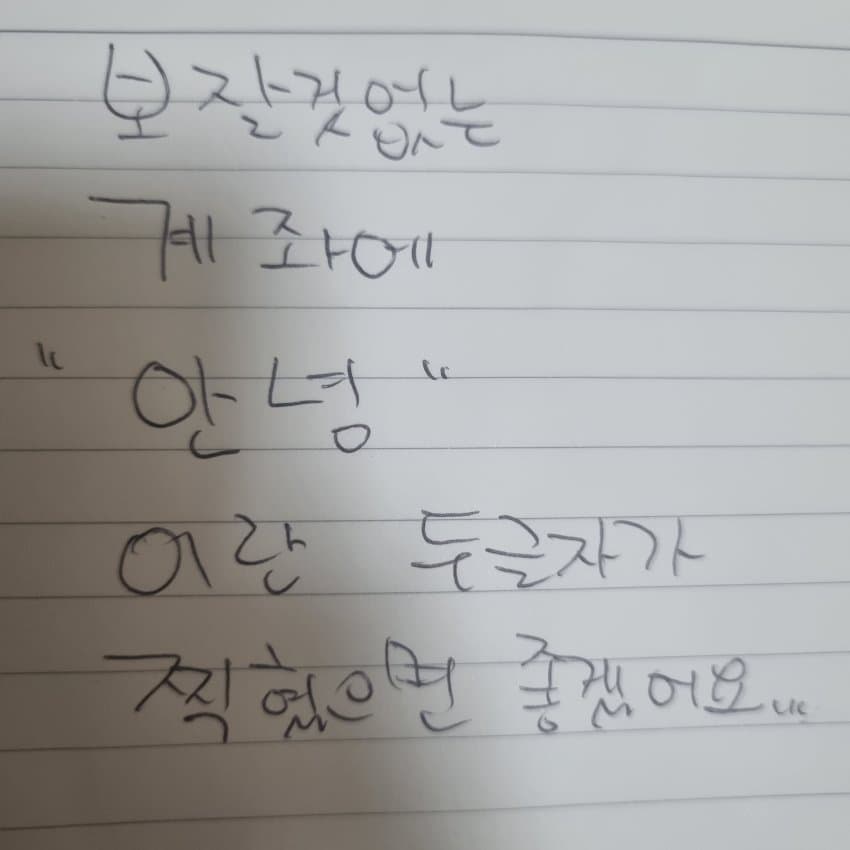 보잘것없는
계좌에
"안녕"
이란 두글자가
찍혔으면 좋겠어요...